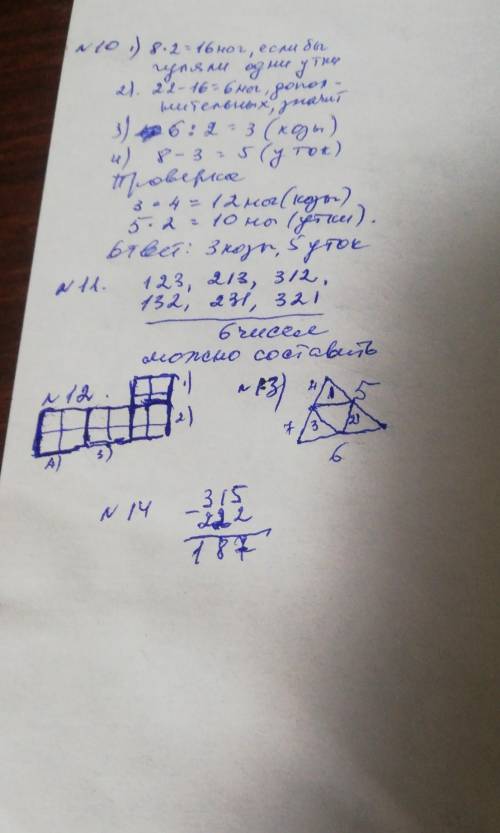 №10 1) 8·2=16 ног, если бы
гуляли одни утки
2). 22-16=6 ног, допол-
нительных, значит
3) 6:2=3 (козы)
4) 8-3=5 (уток)
Проверка
3·4=12 но (козы)
5·2=10 но (утки).
Ответ: 3 козы, 5 уток
№11. 123, 213, 312,
132, 231, 321
6 чисел
можно составить
№12. 1)
2)
4) 3)
№13)
4 1 5
7 3 2
6
№14 315
- 222
187